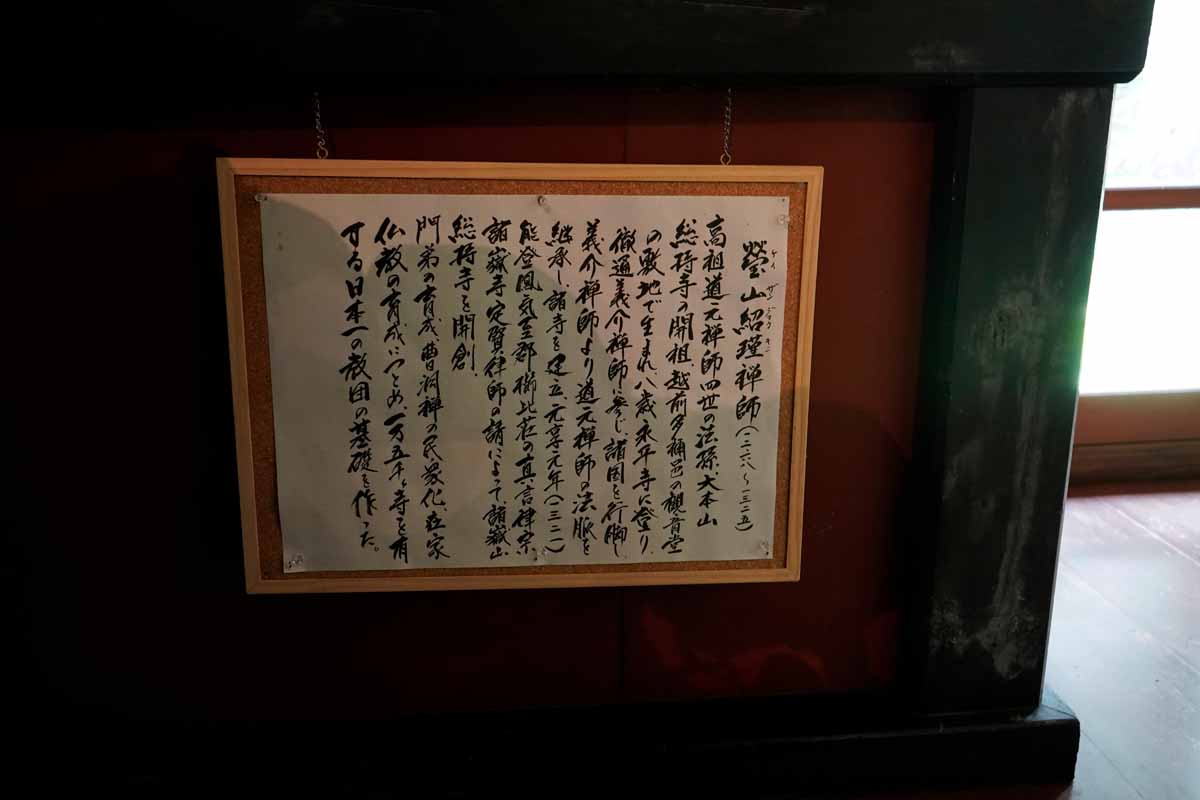 瑩山紹瑾禅師(一二六八～一三二五)
ケイ ザン ジョウ キン
高祖道元禅師四世の法孫、大本山
総持寺の開祖、越前多禰邑の観音堂
の敷地で生まれ、八歳永平寺に登り、
徹通義介禅師に参じ諸国を行脚し
義介禅師より道元禅師の法脈を
継承し、諸寺を建立、元享元年(一三二一)
能登鳳気至郡櫛比荘の真言律宗、
諸嶽寺定賢律師の請によって、諸嶽山
総持寺を開創、
門弟の育成、曹洞禅の民衆化、在家
仏教の育成につとめ一万五千ヶ寺を有
する日本一の教団の基礎を作った。